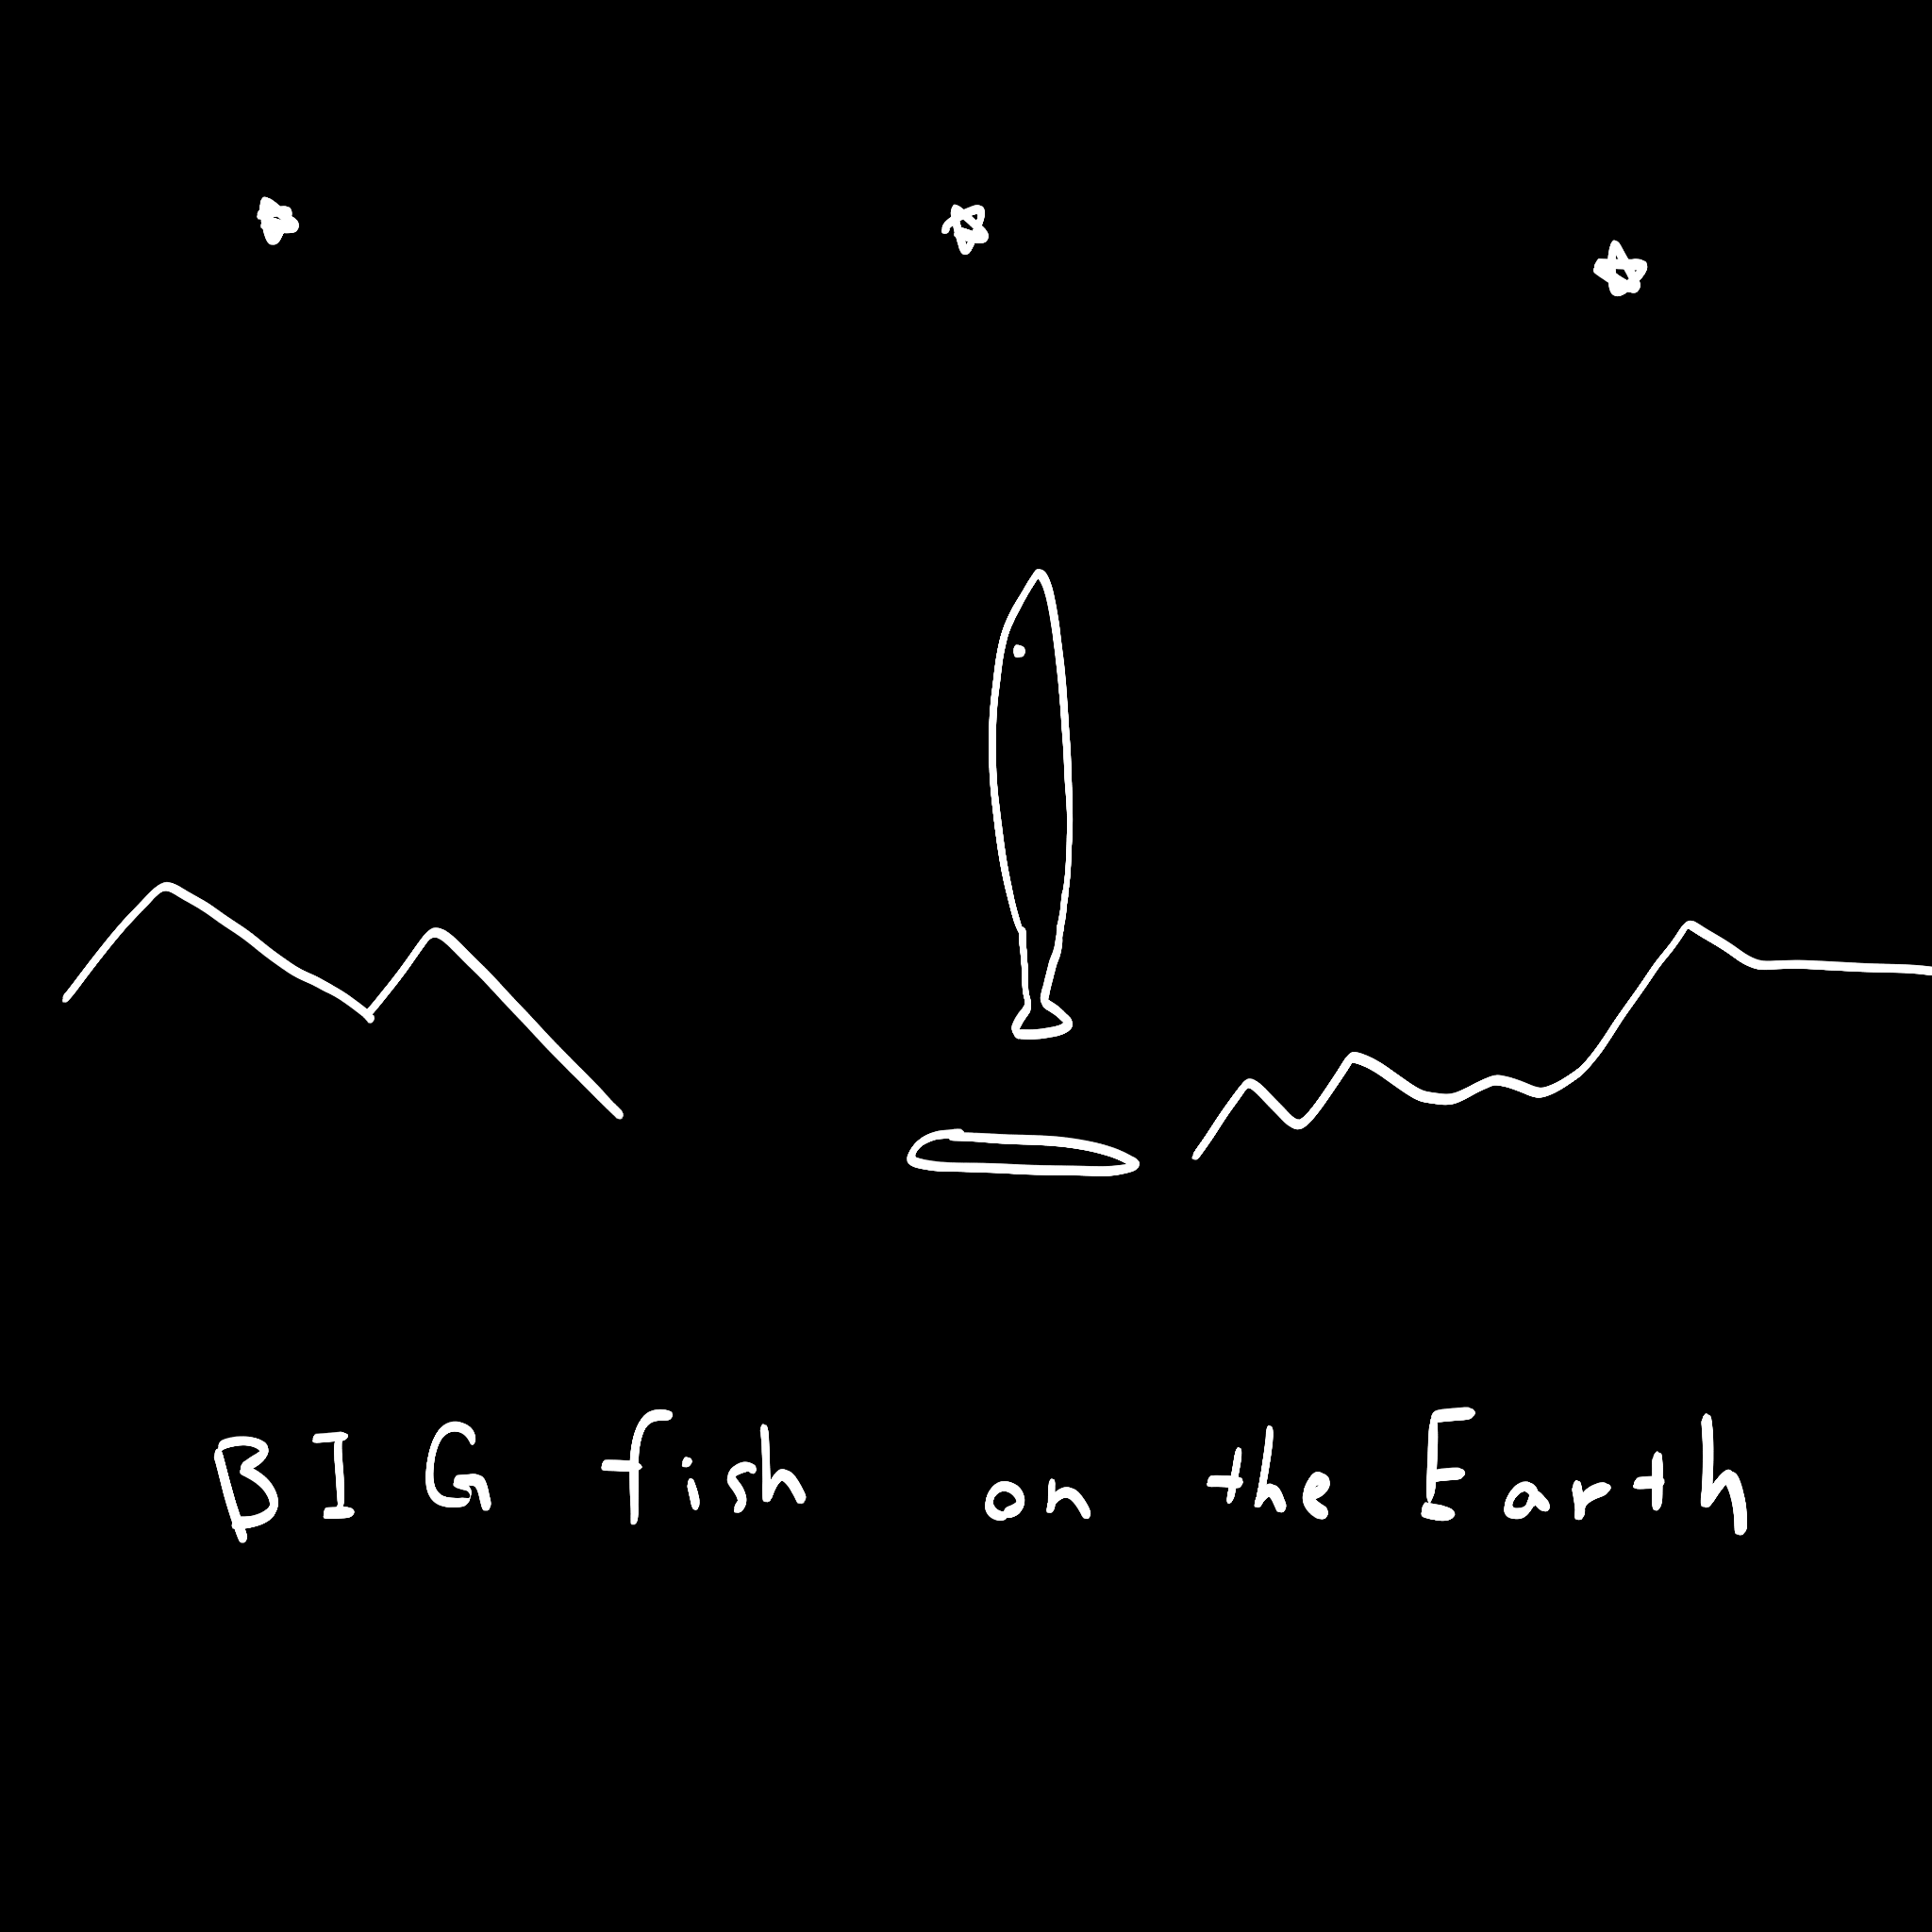 BIG fish on the Earth